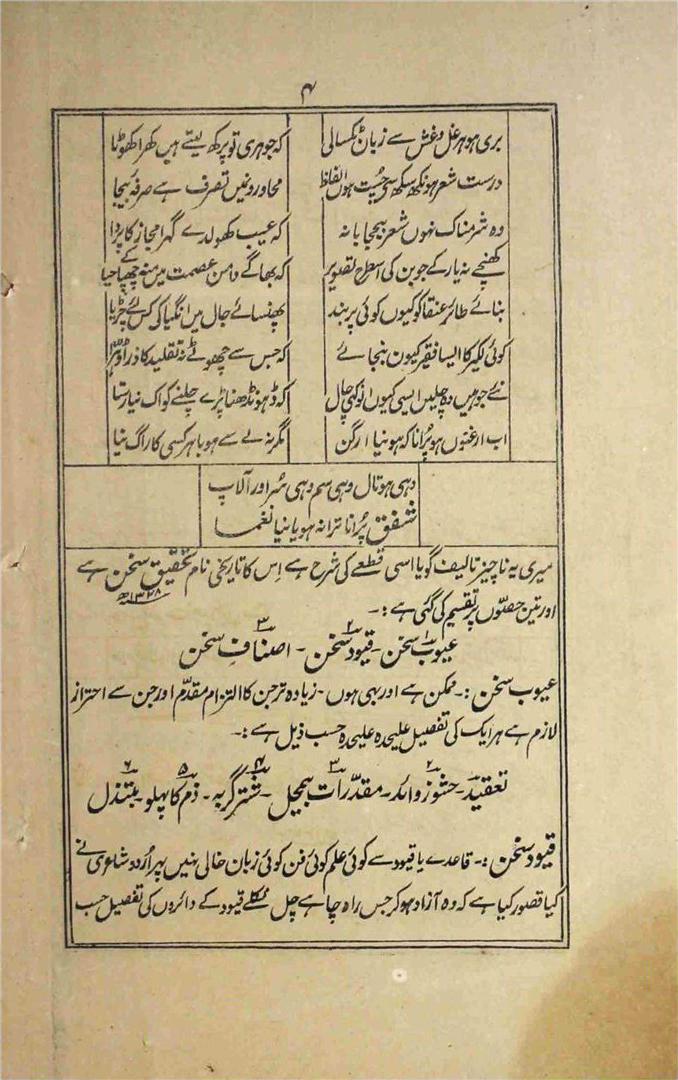 ۴
بری ہو ہر غل و غش سے زبان ٹکسالی
کہ جوہری تو پرکھ لیتے ہیں کھرا کھوٹا
درست شعر ہو نکھ سکھ سے چست ہوں الفاظ
محاورونمیں تصرف ہے صرفۂ بیجا
وہ شرمناک نہوں شعر بیحجابانہ
کہ عیب کھولدے گہرا مجاز کا پردا
کھنچے نہ یار کے جوبن کی اسطرح تصویر
کہ بھاگے دامن عصمت میں منہ چھپا کے حیا
بنائے طائر عنقا کو کیوں کوئی پر بند
پھنسائے جال میں انگیا کی کس لئے چڑیا
کوئی لکیر کا ایسا فقیر کیون بنجائے
کہ جس سے چھوٹے نہ تقلید کا ذرا
نئے جو ہیں وہ چلیں ایسی کیوں انوکھی چال
کہ ڈھونڈھنا پڑے چلنے کو اک نیا رستا
اب ارغنوں ہو پرانا کہ ہو نیا ارگن
مگر نہ لے سے ہو باہر کسی کا راگ نیا
وہی ہو تال وہی سم وہی سُر اور آلاپ
شفق پُرانا ترانہ ہو یا نیا نغما
میری یہ ناچیز تالیف گویا اسی قطعے کی شرح ہے اِس کا تاریخی نام تحقیق سخن ہے
۱۳۲۸ھ
اور تین حصّوں پر تقسیم کی گئی ہے :۔
عیوب سخن ۔ قیود سخن ۔ اصنافِ سخن
۱ ۲ ۳
عیوب سخن :۔ ممکن ہے اور بھی ہوں ۔ زیادہ تر جن کا التزام مقدّم اور جن سے احتراز
لازم ہے ہر ایک کی تفصیل علیحدہ علیحدہ حسب ذیل ہے :۔
تعقید ۔ حشو زوائد ۔ مقدّرات بیمحل ۔ شتر گربہ ۔ ذم کا پہلو ۔ مبتذل
۱ ۲ ۳ ۴ ۵ ۶
قیود سخن :۔ قاعدے یا قیود سے کوئی علم کوئی فن کوئی زبان خالی نہیں پھر اُردو شاعری نے
کیا قصور کیا ہے کہ وہ آزاد ہو کر جس راہ چاہے چل نکلے قیود کے دائروں کی تفصیل حسب